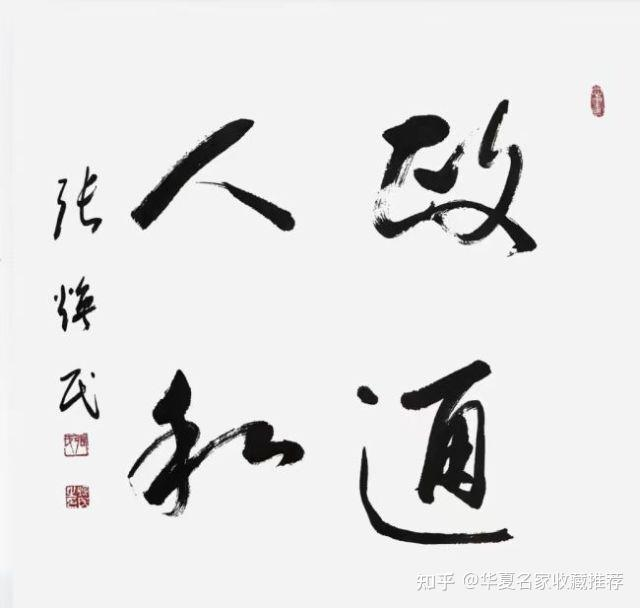 政通
人和
张焕民
知乎 @华夏名家收藏推荐